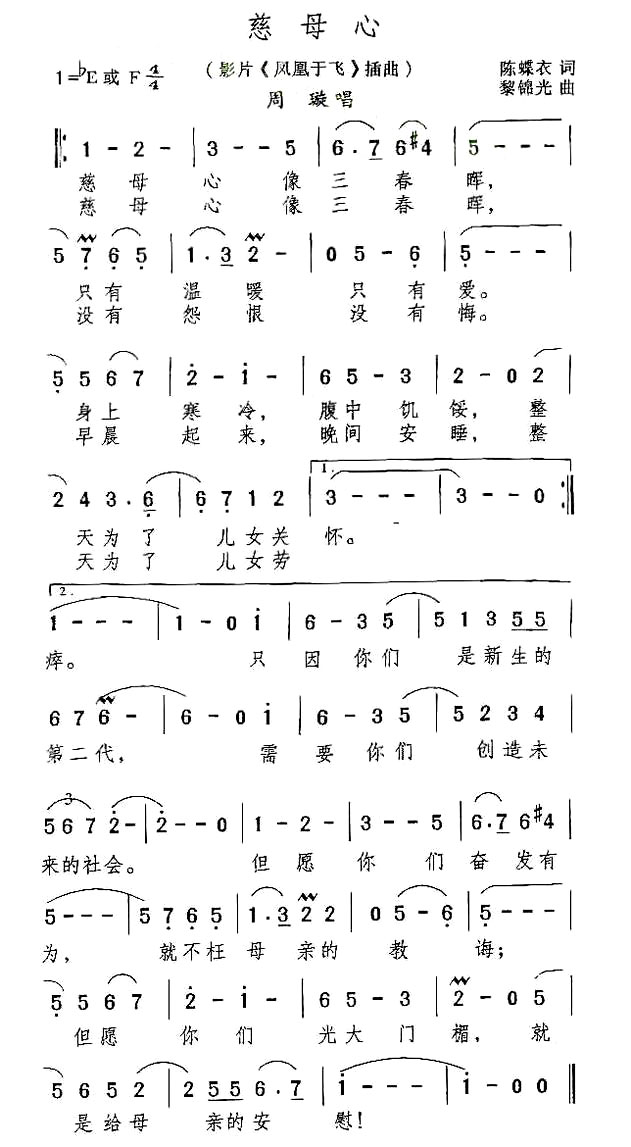 慈母心
1=♭E或 F 4/4
（影片《凤凰于飞》插曲）
陈蝶衣 词
黎锦光 曲
周 璇唱
‖: 1 - 2 - | 3 - - 5 | 6 . 7 6 #4 | 5 - - - |
慈 母 心 像 三 春 晖，
慈 母 心 像 三 春 晖，
5 7 6 5 | 1 . 3 2 - | 0 5 - 6 | 5 - - - |
只有 温 暖 只 有 爱。
没有 怨 恨 没 有 悔。
5 5 6 7 | 2 - 1 - | 6 5 - 3 | 2 - 0 2 |
身上 寒 冷， 腹中 饥 馁， 整
早晨 起 来， 晚间 安 睡， 整
2 4 3 . 6 | 6 7 1 2 | 1. 3 - - - | 3 - - 0 :‖
天为了 儿女关 怀。
天为了 儿女劳
2. 1 - - - | 1 - 0 1 | 6 - 3 5 | 5 1 3 5 5 |
瘁。 只 因你们 是新生的
6 7 6 - | 6 - 0 1 | 6 - 3 5 | 5 2 3 4 |
第二代， 需 要你们 创造未
3
5 6 7 2 - | 2 - - 0 | 1 - 2 - | 3 - - 5 | 6 . 7 6 #4 |
来的社会。 但 愿 你 们 奋 发有
5 - - - | 5 7 6 5 | 1 . 3 2 2 | 0 5 - 6 | 5 - - - |
为， 就不枉 母 亲的 教 诲；
5 5 6 7 | 2 - 1 - | 6 5 - 3 | 2 - 0 5 |
但愿 你 们 光大 门 楣， 就
5 6 5 2 | 2 5 5 6 . 7 | 1 - - - | 1 - 0 0 ‖
是给母 亲的安 慰！